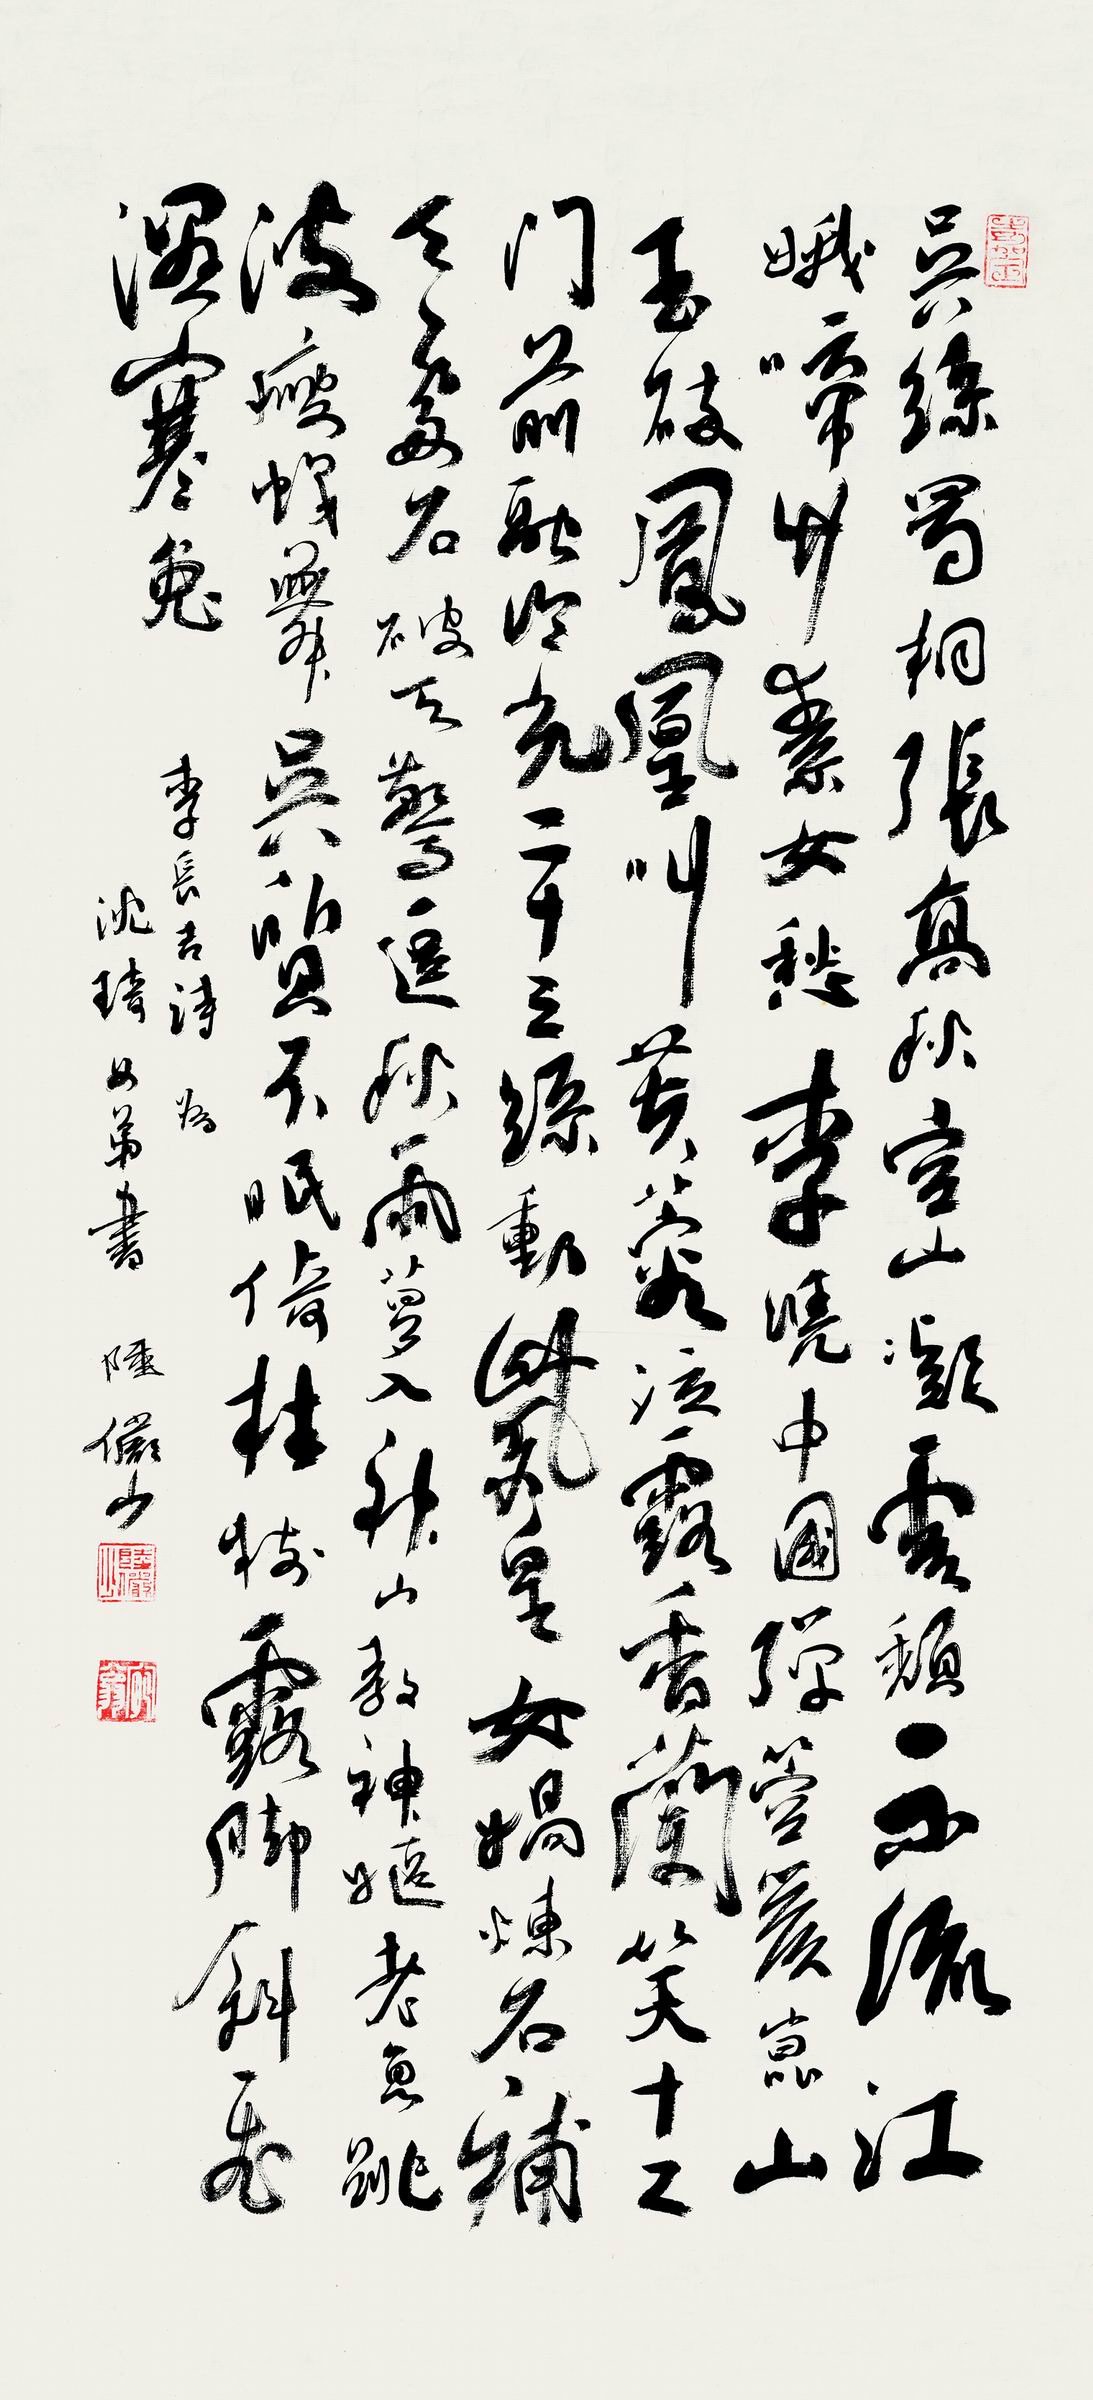 吳絲蜀桐張高秋空山凝雲頹不流江
娥啼竹素女愁李憑中國彈箜篌崑山
玉碎鳳凰叫芙蓉泣露香蘭笑十二
门前融冷光二十三絲動紫皇女媧煉石補
天處石破天驚逗秋雨夢入神山教神嫗老魚跳
波瘦蛟舞吳質不眠倚桂樹露脚斜飛
濕寒兔
李長吉詩 為
沈琦女弟書 陸儼少
陸儼少
宛翁